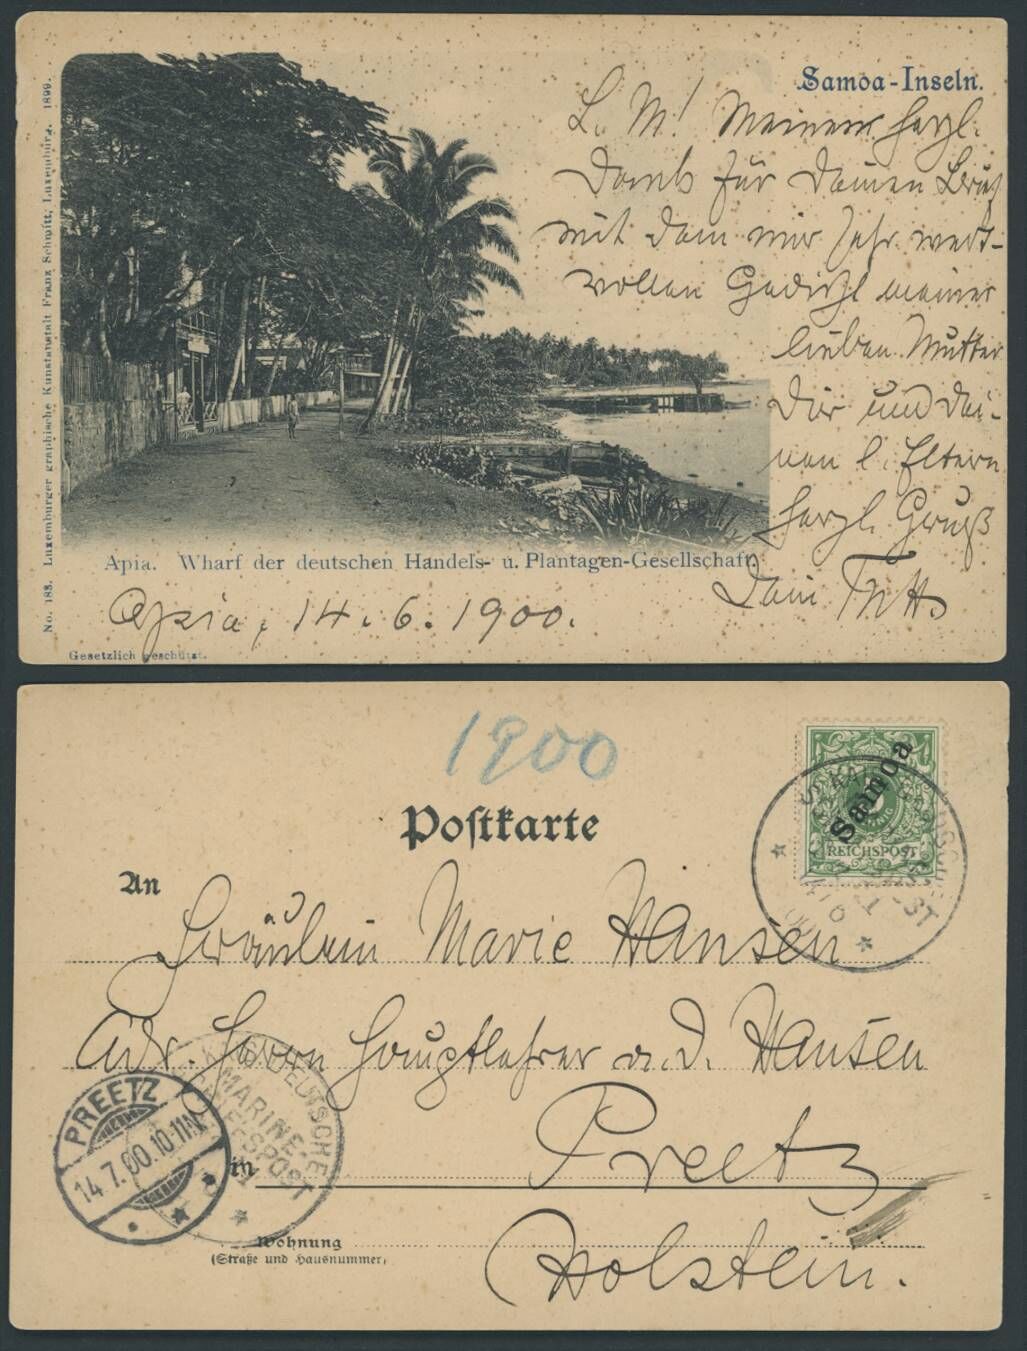 Samoa-Inseln.
L. M! Meinen herzl.
Dank für Deinen Brief
mit dem mir sehr wert-
vollen Gedicht meiner
lieben Mutter
Dir und Dei-
nen l. Eltern
herzl. Gruß
Dein
No. 183. Luxemburger graphische Kunstanstalt Franz Schmitt, Luxemburg. 1899.
Apia. Wharf der deutschen Handels- u. Plantagen-Gesellschaft.
Apia, 14. 6. 1900.
Gesetzlich geschützt.
1900
Postkarte
Samoa
REICHSPOST
An
Fräulein Marie Hansen
Adr. Herrn Hauptlehrer a. D. Hansen
KAIS. DEUTSCHE
MARINE-
SCHIFFSPOST
PREETZ
14.7.00.10-11N
in
Preetz
Wohnung
(Straße und Hausnummer)
Holstein.